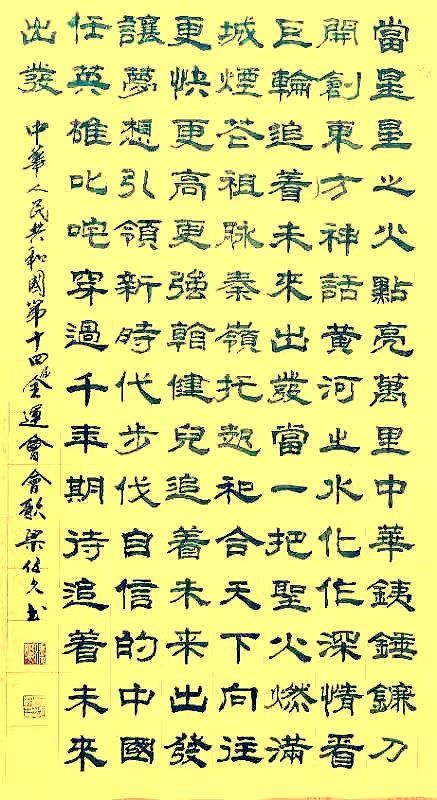 當星星之火點亮萬里中華鉄錘鐮刀
開創東方神話黃河之水化作深情看
巨輪追着未來出發當一把聖火燃滿
城煙花祖脉秦嶺托起和合天下向往
更快更高更強健兒追着未来出發
讓夢想引領新時代步伐自信的中國
任英雄叱咤穿過千年期待追着未來
出發
中華人民共和國第十四届全運會會歌梁書